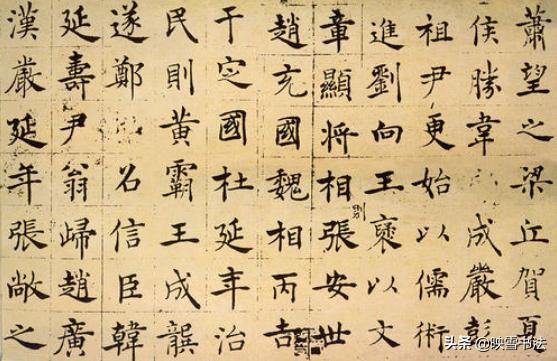 蕭望之梁丘賀夏
侯勝韋成嚴彭
祖尹更始以儒術
進劉向王襃以文
章顯將相則張安世
趙充國魏相丙吉
于定國杜延年治
民則黃霸王成龔
遂鄭召信臣韓
延壽尹翁歸趙廣
漢嚴延年張敞之
头条 @映雪书法